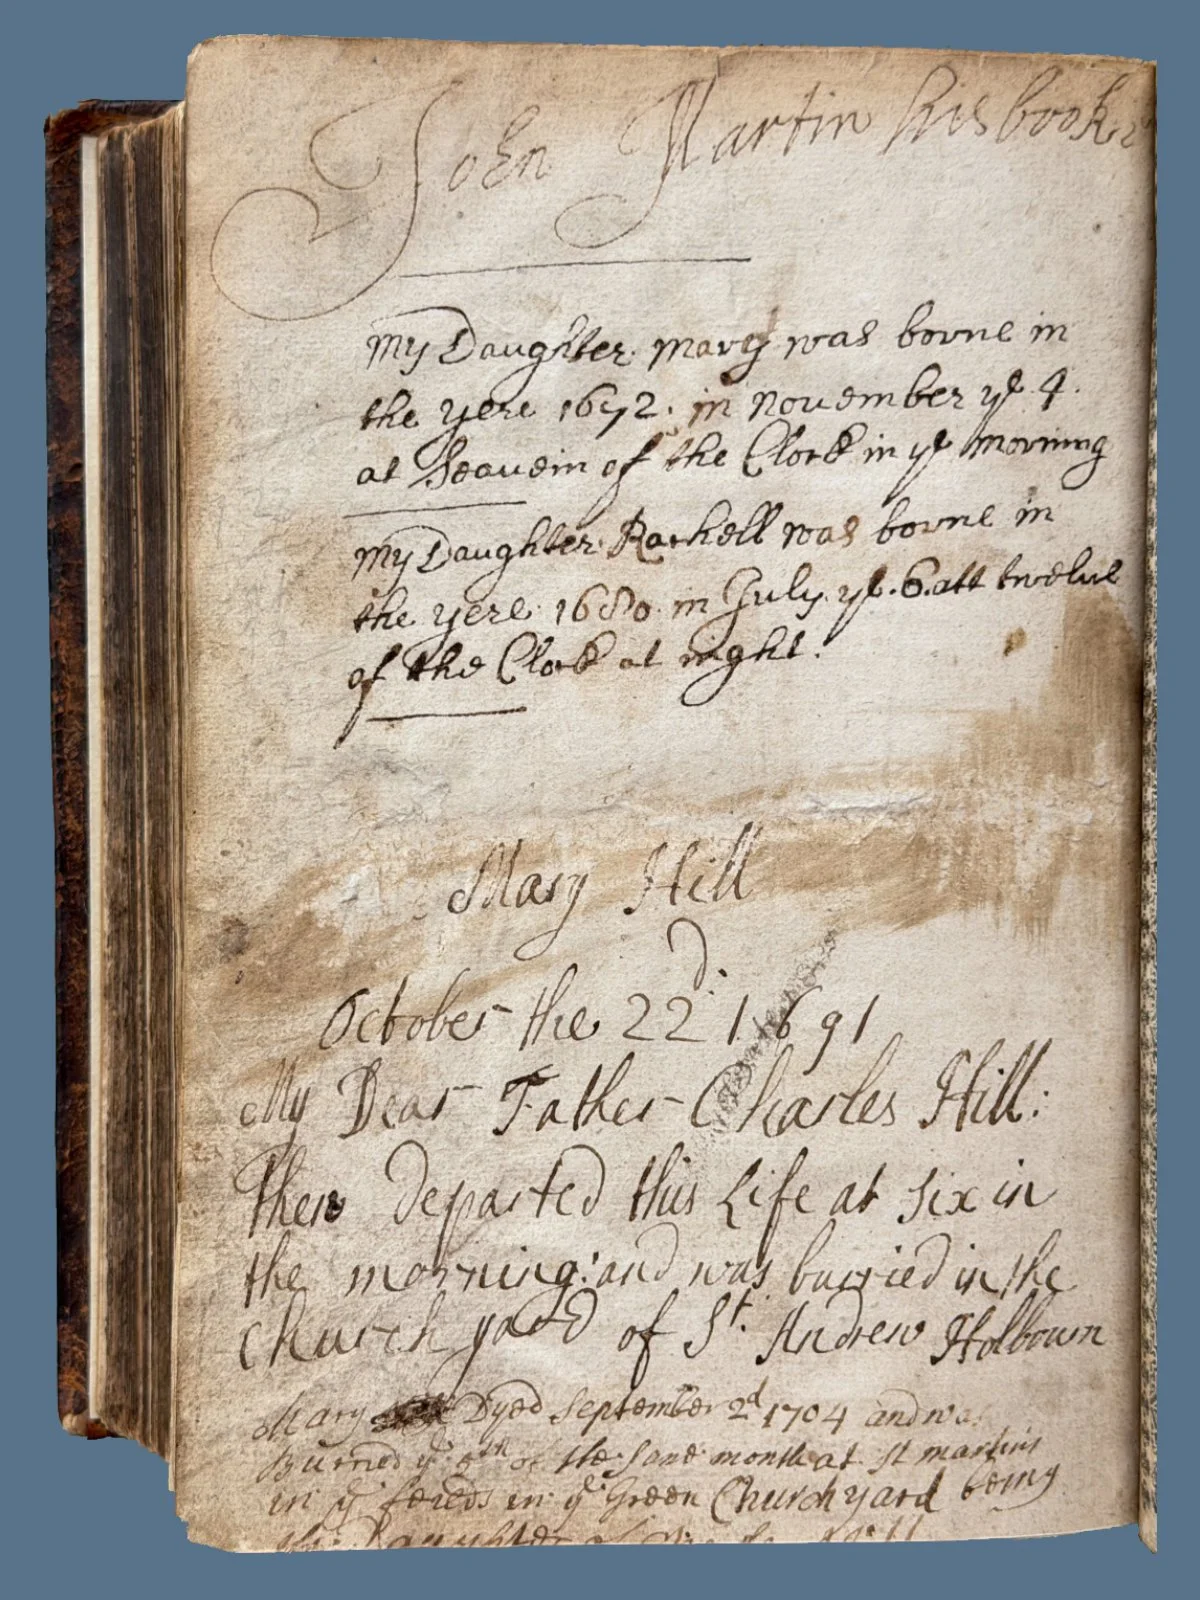 John Martin his book
My Daughter mary was borne in
the yere 1672. in november ye 4.
at Seauein of the Clock in ye morning
My Daughter Rachell was borne in
the yere 1680 in July ye. 6. att twelue
of the Clock at night.
Mary Hill
October the 22d. 1691
My Dear Father Charles Hill:
Then departed this Life at six in
the morning: and was burried in the
Church yard of St. Andrew Holbourn
Mary Dyed September 2d 1704 and was
Burried ye 5th of the same month at St martins
in ye feieds in ye Green Church yard being
Daughter of Hill